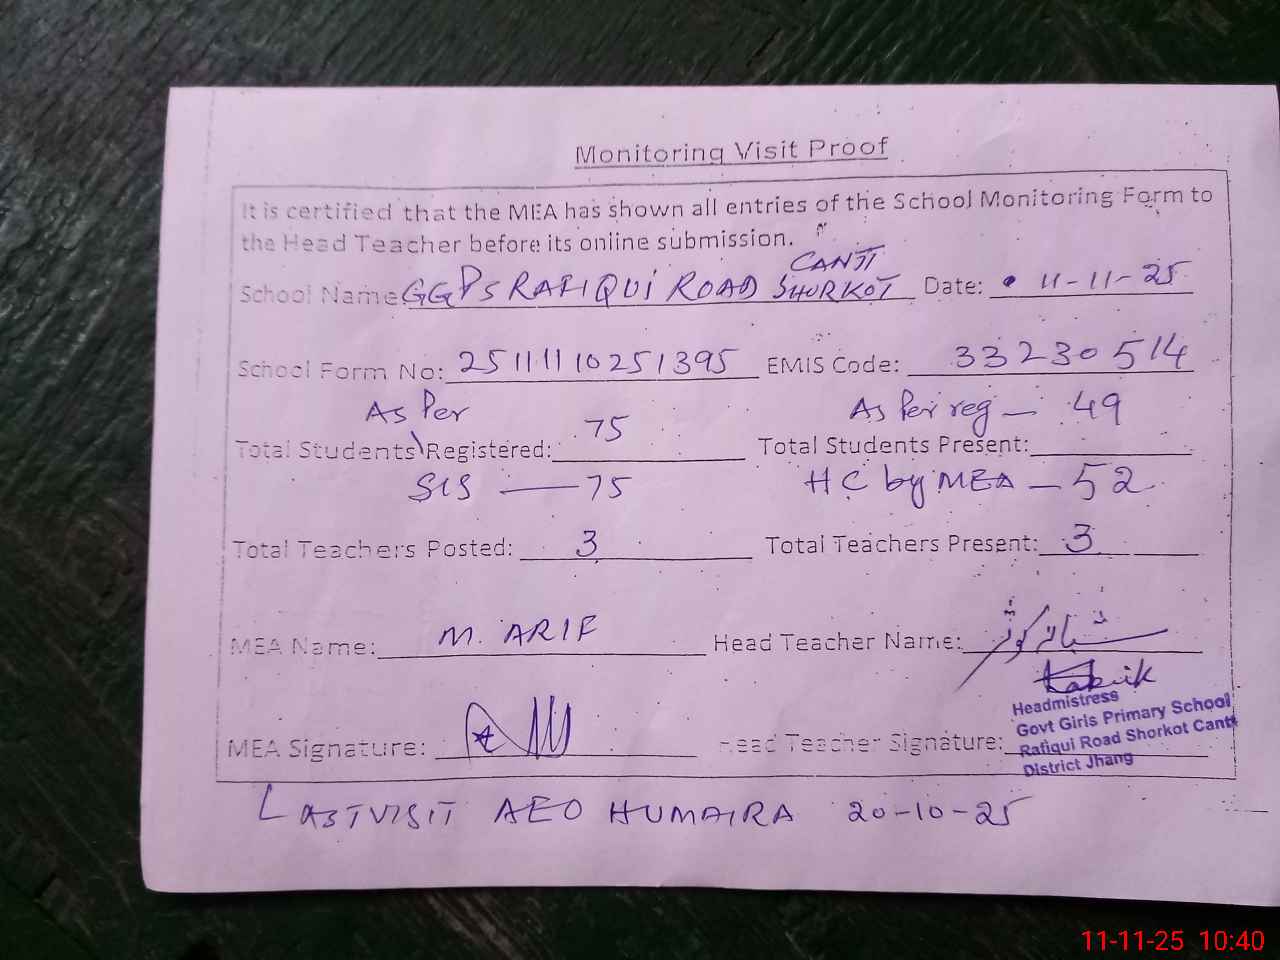 Monitoring Visit Proof
It is certified that the MEA has shown all entries of the School Monitoring Form to
the Head Teacher before its online submission.
School Name: GGPS RAFIQUI ROAD SHORKOT CANTT Date: 11-11-25
School Form No: 25111110251395 EMIS Code: 33230514
As Per As Per reg — 49
Total Students Registered: 75 Total Students Present:
SIS — 75 HC by MEA — 52
Total Teachers Posted: 3 Total Teachers Present: 3
MEA Name: M. ARIF Head Teacher Name:
Headmistress
Govt Girls Primary School
Rafiqui Road Shorkot Cantt
District Jhang
MEA Signature: Head Teacher Signature:
LAST VISIT AEO HUMAIRA 20-10-25
11-11-25 10:40